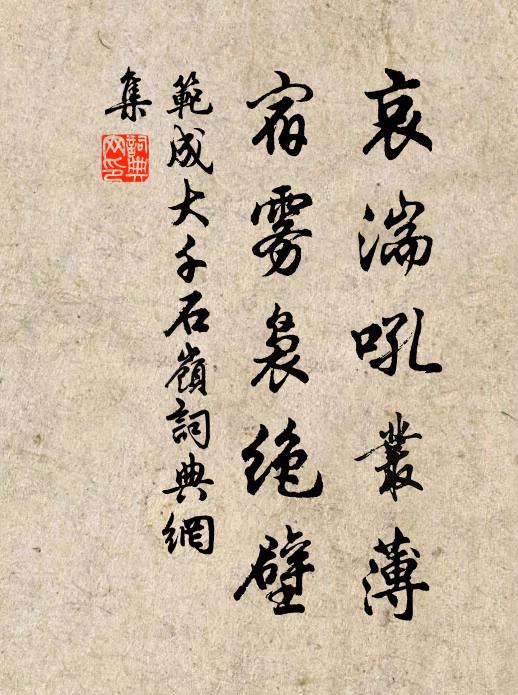 哀湍吼叢薄
宿雾裊絶壁
範成大千石嶺詞典網
集
詞典网印